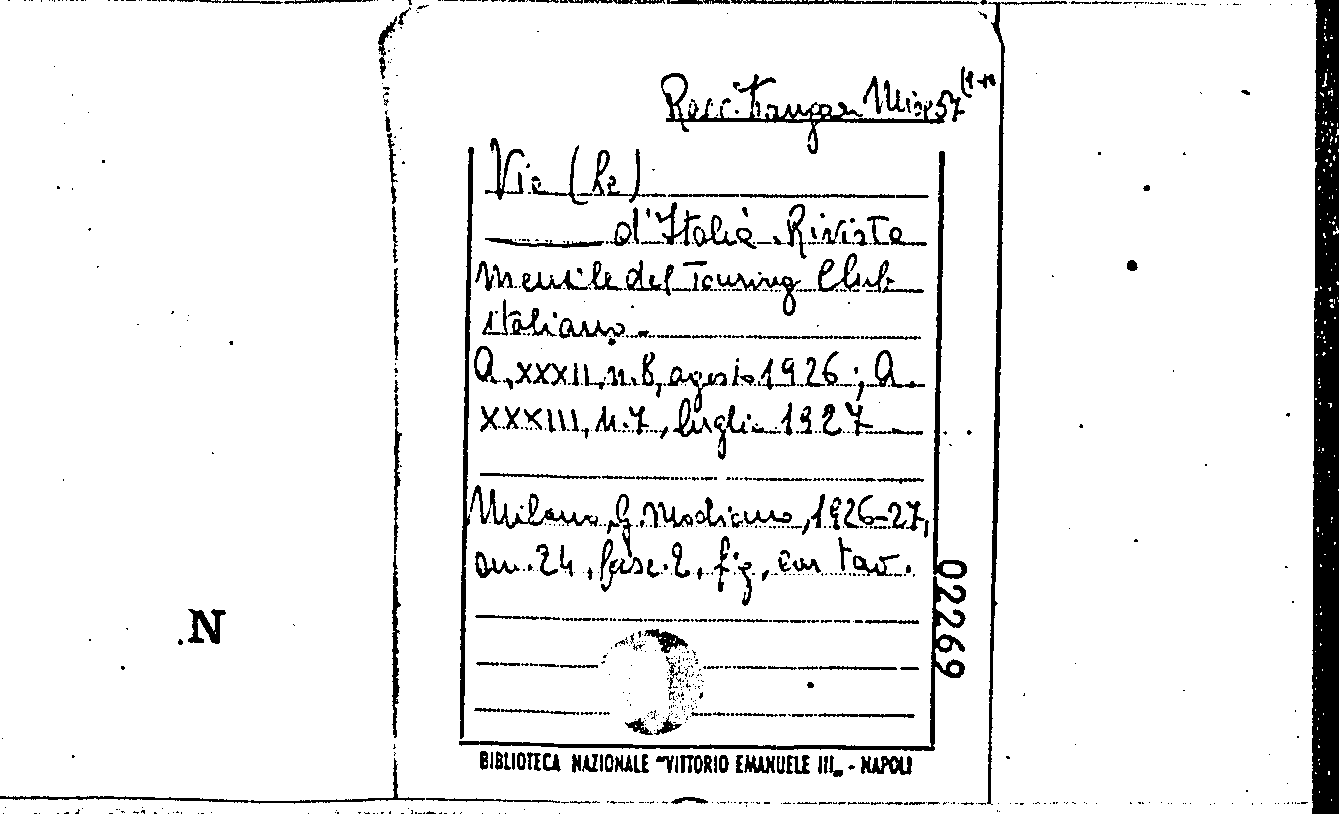 Racc. Misc 57 (1-
Vie (Le)
d'Italia. Rivista
mensile del Touring Club
italiano.
A. XXXII, n. 8, agosto 1926; A.
XXXIII, n. 7, luglio 1927
Milano, G. Modiano, 1926-27,
cm. 24, fasc. 2, fig. con tav.
02269
.N
BIBLIOTECA NAZIONALE "VITTORIO EMANUELE III„ - NAPOLI